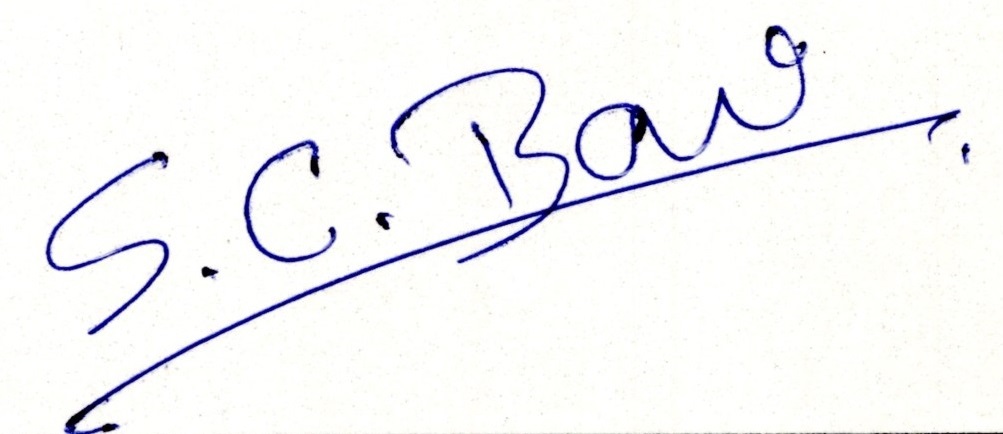 S. C. Bar